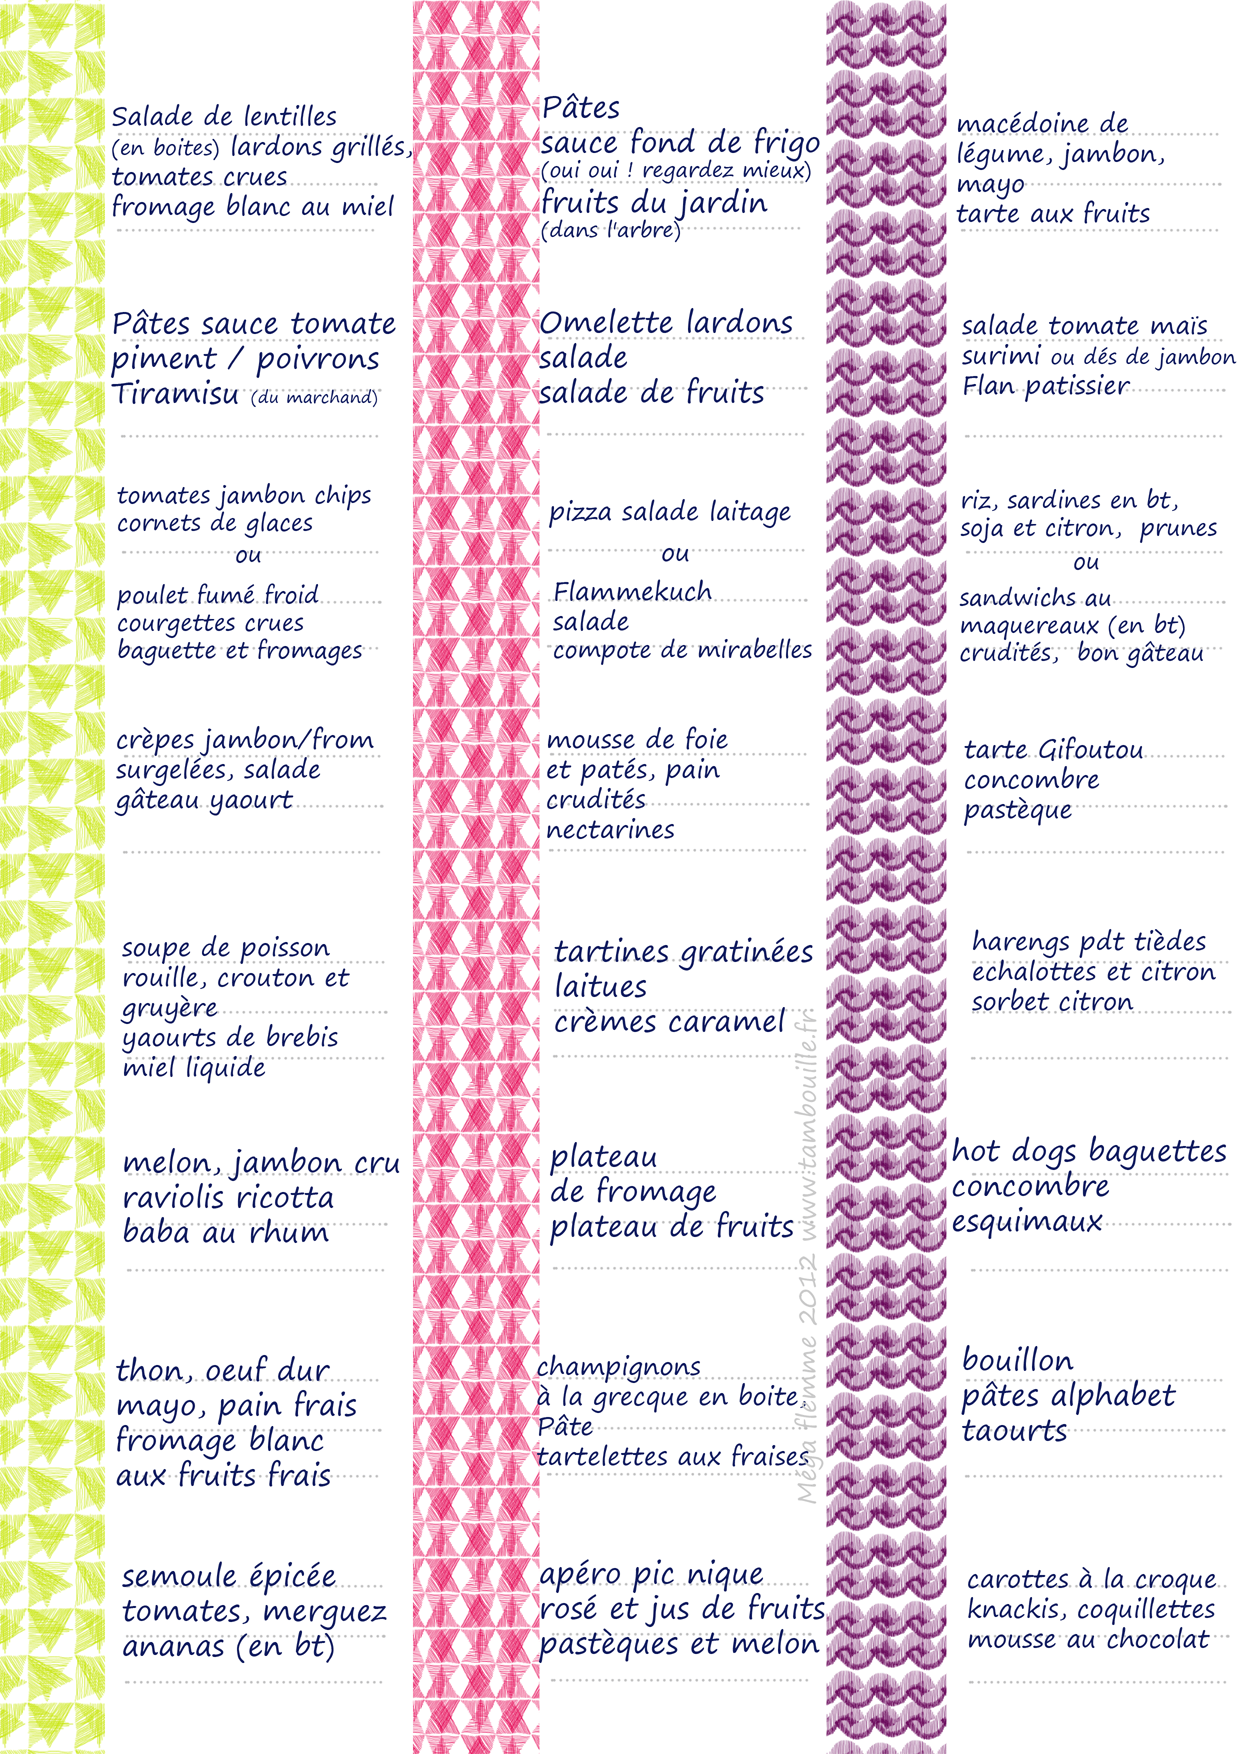 Salade de lentilles
(en boites) lardons grillés,
tomates crues
fromage blanc au miel
Pâtes sauce tomate
piment / poivrons
Tiramisu (du marchand)
tomates jambon chips
cornets de glaces
ou
poulet fumé froid
courgettes crues
baguette et fromages
crèpes jambon/from
surgelées, salade
gâteau yaourt
soupe de poisson
rouille, crouton et
gruyère
yaourts de brebis
miel liquide
melon, jambon cru
raviolis ricotta
baba au rhum
thon, oeuf dur
mayo, pain frais
fromage blanc
aux fruits frais
semoule épicée
tomates, merguez
ananas (en bt)
Pâtes
sauce fond de frigo
(oui oui ! regardez mieux)
fruits du jardin
(dans l'arbre)
Omelette lardons
salade
salade de fruits
pizza salade laitage
ou
Flammekuch
salade
compote de mirabelles
mousse de foie
et patés, pain
crudités
nectarines
tartines gratinées
laitues
crèmes caramel
plateau
de fromage
plateau de fruits
champignons
à la grecque en boite,
Pâte
tartelettes aux fraises
apéro pic nique
rosé et jus de fruits
pastèques et melon
Méga flemme 2012 www.tambouille.fr
macédoine de
légume, jambon,
mayo
tarte aux fruits
salade tomate maïs
surimi ou dés de jambon
Flan patissier
riz, sardines en bt,
soja et citron, prunes
ou
sandwichs au
maquereaux (en bt)
crudités, bon gâteau
tarte Gifoutou
concombre
pastèque
harengs pdt tièdes
echalottes et citron
sorbet citron
hot dogs baguettes
concombre
esquimaux
bouillon
pâtes alphabet
taourts
carottes à la croque
knackis, coquillettes
mousse au chocolat